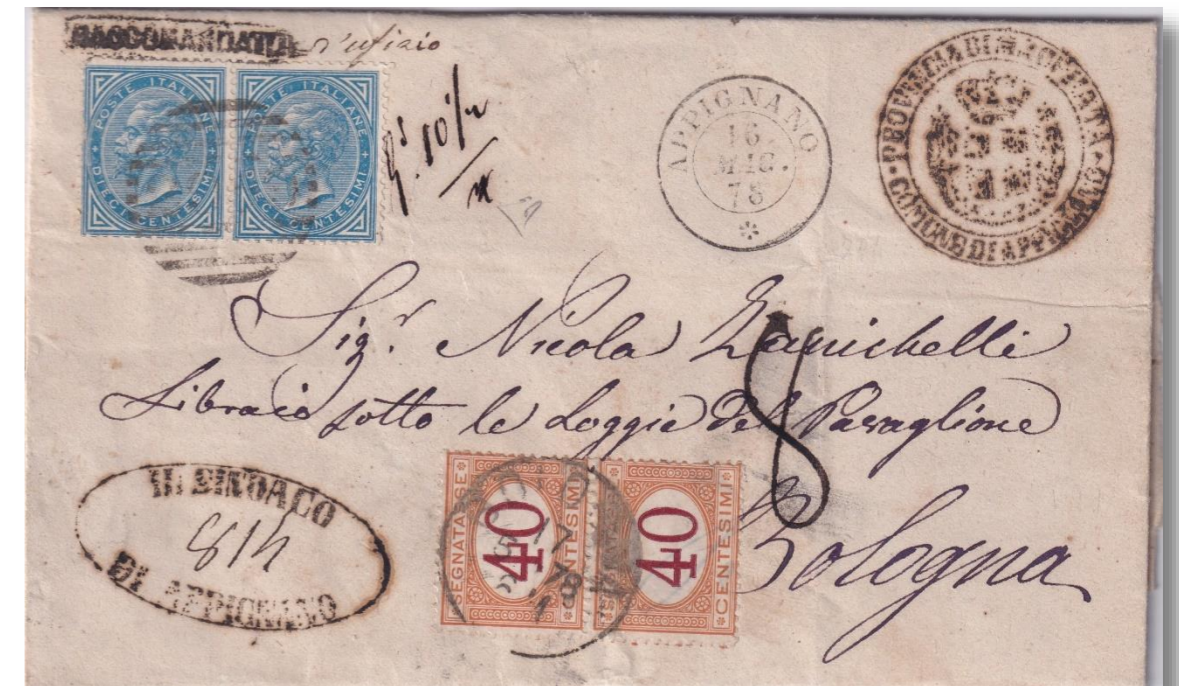 RACCOMANDATO d'ufizio
POSTE ITALIANE
DIECI CENTESIMI
POSTE ITALIANE
DIECI CENTESIMI
APPIGNANO
16
78
PROVINCIA DI MACERATA
COMUNE DI APPIGNANO
Sig.r Nicola Zanichelli
Libraio sotto le Loggie del Pavaglione
8
Bologna
IL SINDACO
814
DI APPIGNANO
SEGNATASSE
40
CENTESIMI
40
CENTESIMI
17
78